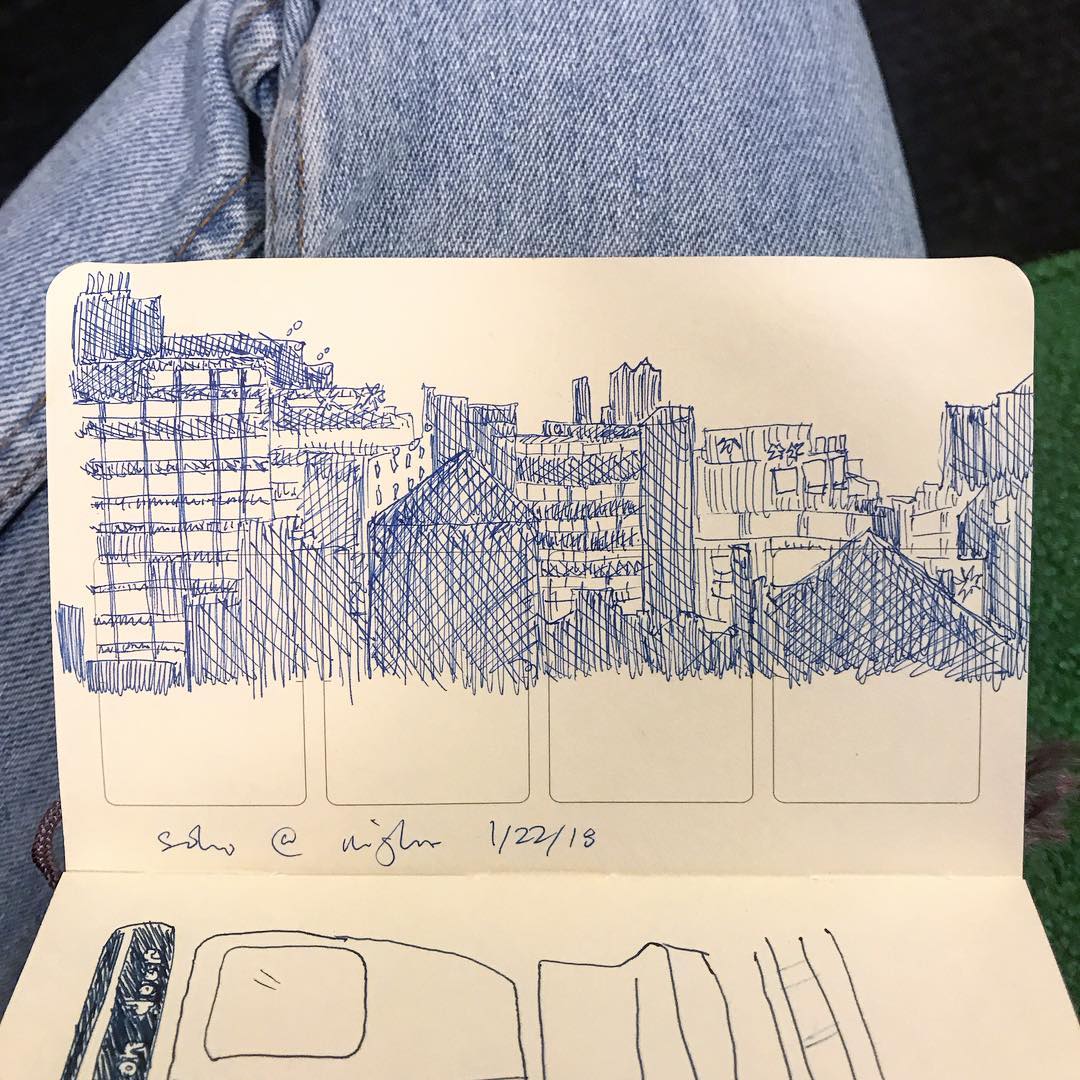 soho @ night 1/22/18